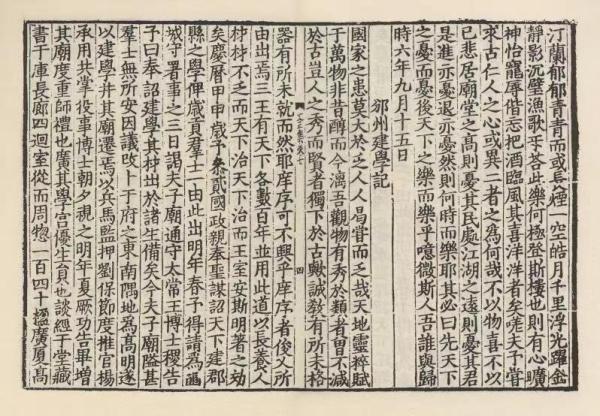 汀蘭郁郁青青而或長煙一空皓月千里浮光躍金
靜影沉璧漁歌互荅此樂何極登斯樓也則有心曠
神怡寵辱偕忘把酒臨風其喜洋洋者矣嗟夫予嘗
求古仁人之心或異二者之為何哉不以物喜不以
已悲居廟堂之高則憂其民處江湖之遠則憂其君
是進亦憂退亦憂然則何時而樂耶其必曰先天下
之憂而憂後天下之樂而樂乎噫微斯人吾誰與歸
時六年九月十五日
邠州建學記
國家之患莫大於乏人人曷嘗而乏哉天地靈粹賦
于萬物非昔醇而今漓吾觀物有秀於類者曽不减
於古豈人之秀而賢者獨下於古歟誠教有所未格
四
器有所未就而然耶庠序可不興乎庠序者俊乂所
由出焉三王有天下各數百年並用此道以長養人
材材不乏而天下治天下治而王室安斯明著之効
矣慶曆甲申歲予叅貳國政親奉聖謨詔天下建郡
縣之學俾歲貢羣士一由此出明年春予得請爲豳
城守署事之三日謁夫子廟通守太常王博士稷告
予曰奉詔建學其材出於諸生備矣今夫子廟隘甚
羣士無所安因議改卜于府之東南隅地爲高明遂
以建學并其廟遷焉以兵馬監押劉保節度推官楊
承用共掌役事博士朝夕視之明年夏厥功告畢增
其廟度重師禮也廣其學宫優生員也談經于堂藏
書于庫長廊四迴室從而周惣一百四十楹廣厦高